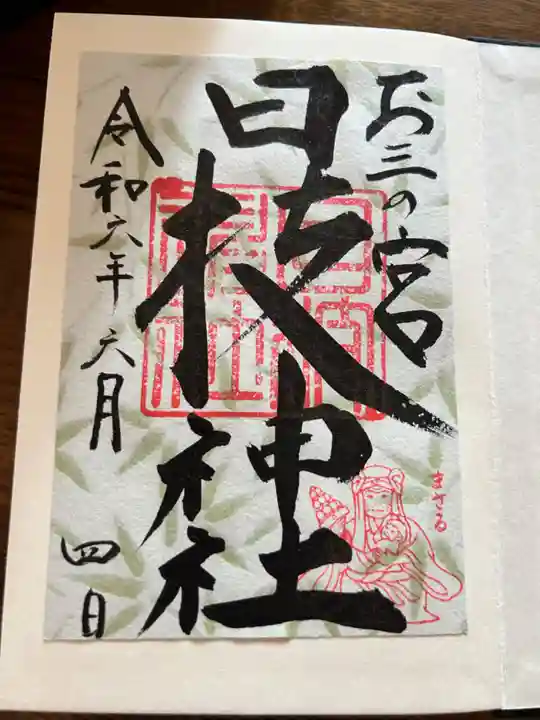 お三の宮
日枝神社
令和六年六月四日
まさる